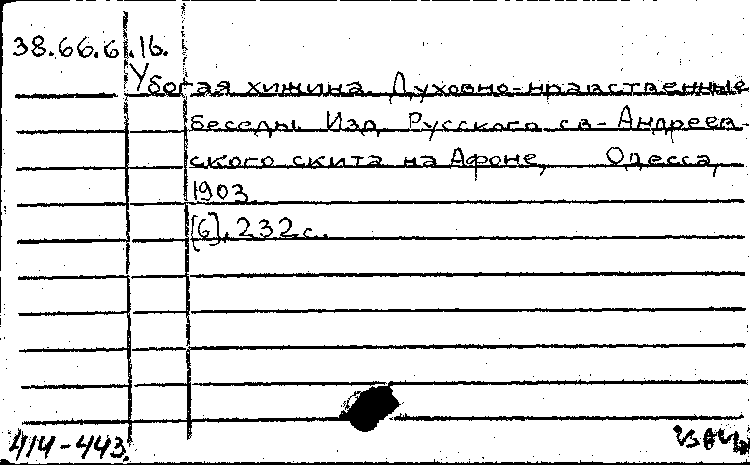 38.66.6.16.
Убогая хижина. Духовно-нравственные
беседы. Изд. Русского св-Андреев-
ского скита на Афоне, Одесса,
1903.
[6], 232 с.
414-443.